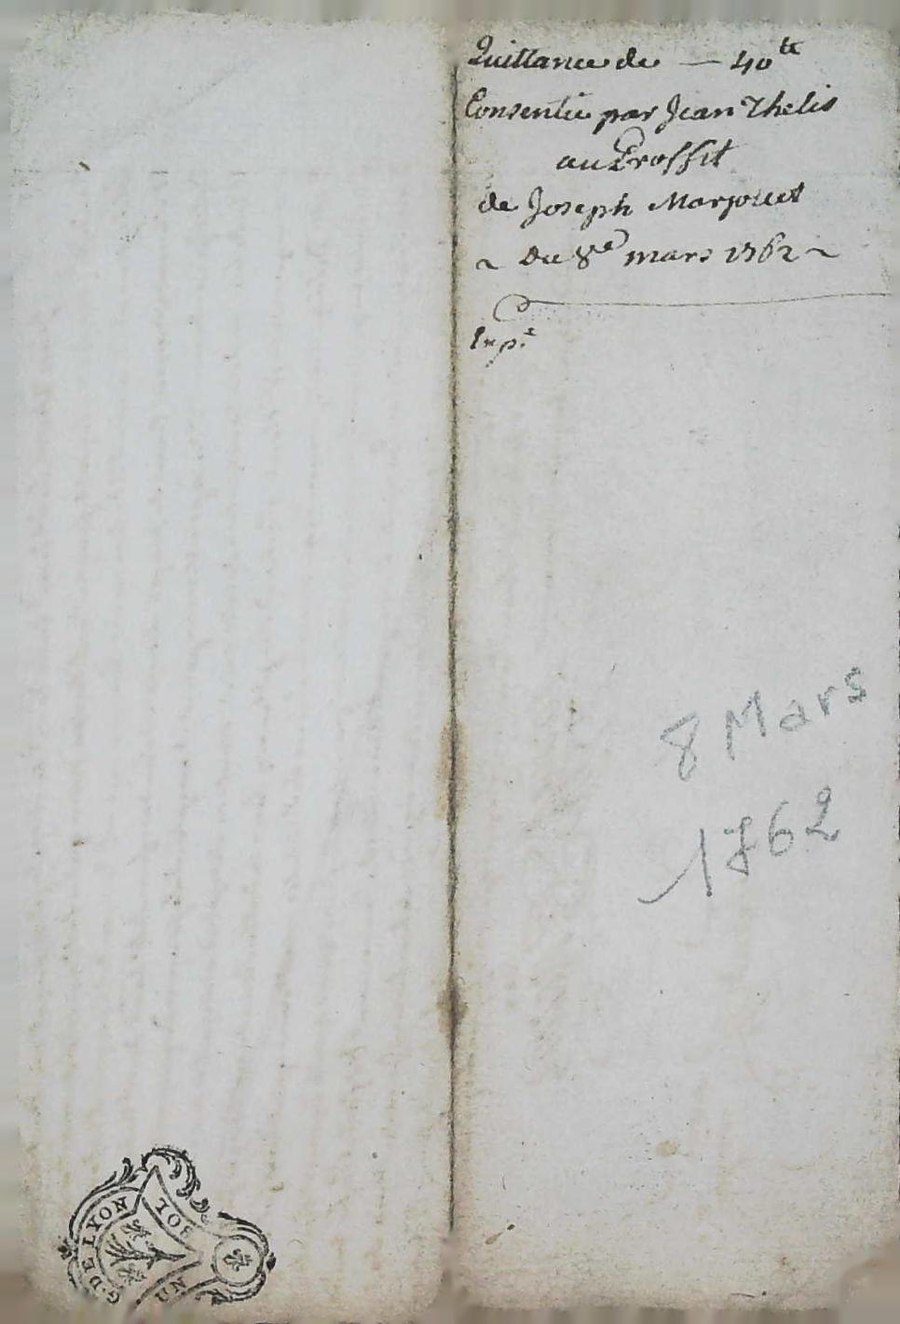 Quittance de — 40 ᵗᵗ
Consentie par Jean Thelis
au Proffit
de Joseph Marjollet
~ Du 8e mars 1762 ~
Exp.e
8 Mars
1762
G. DE LYON